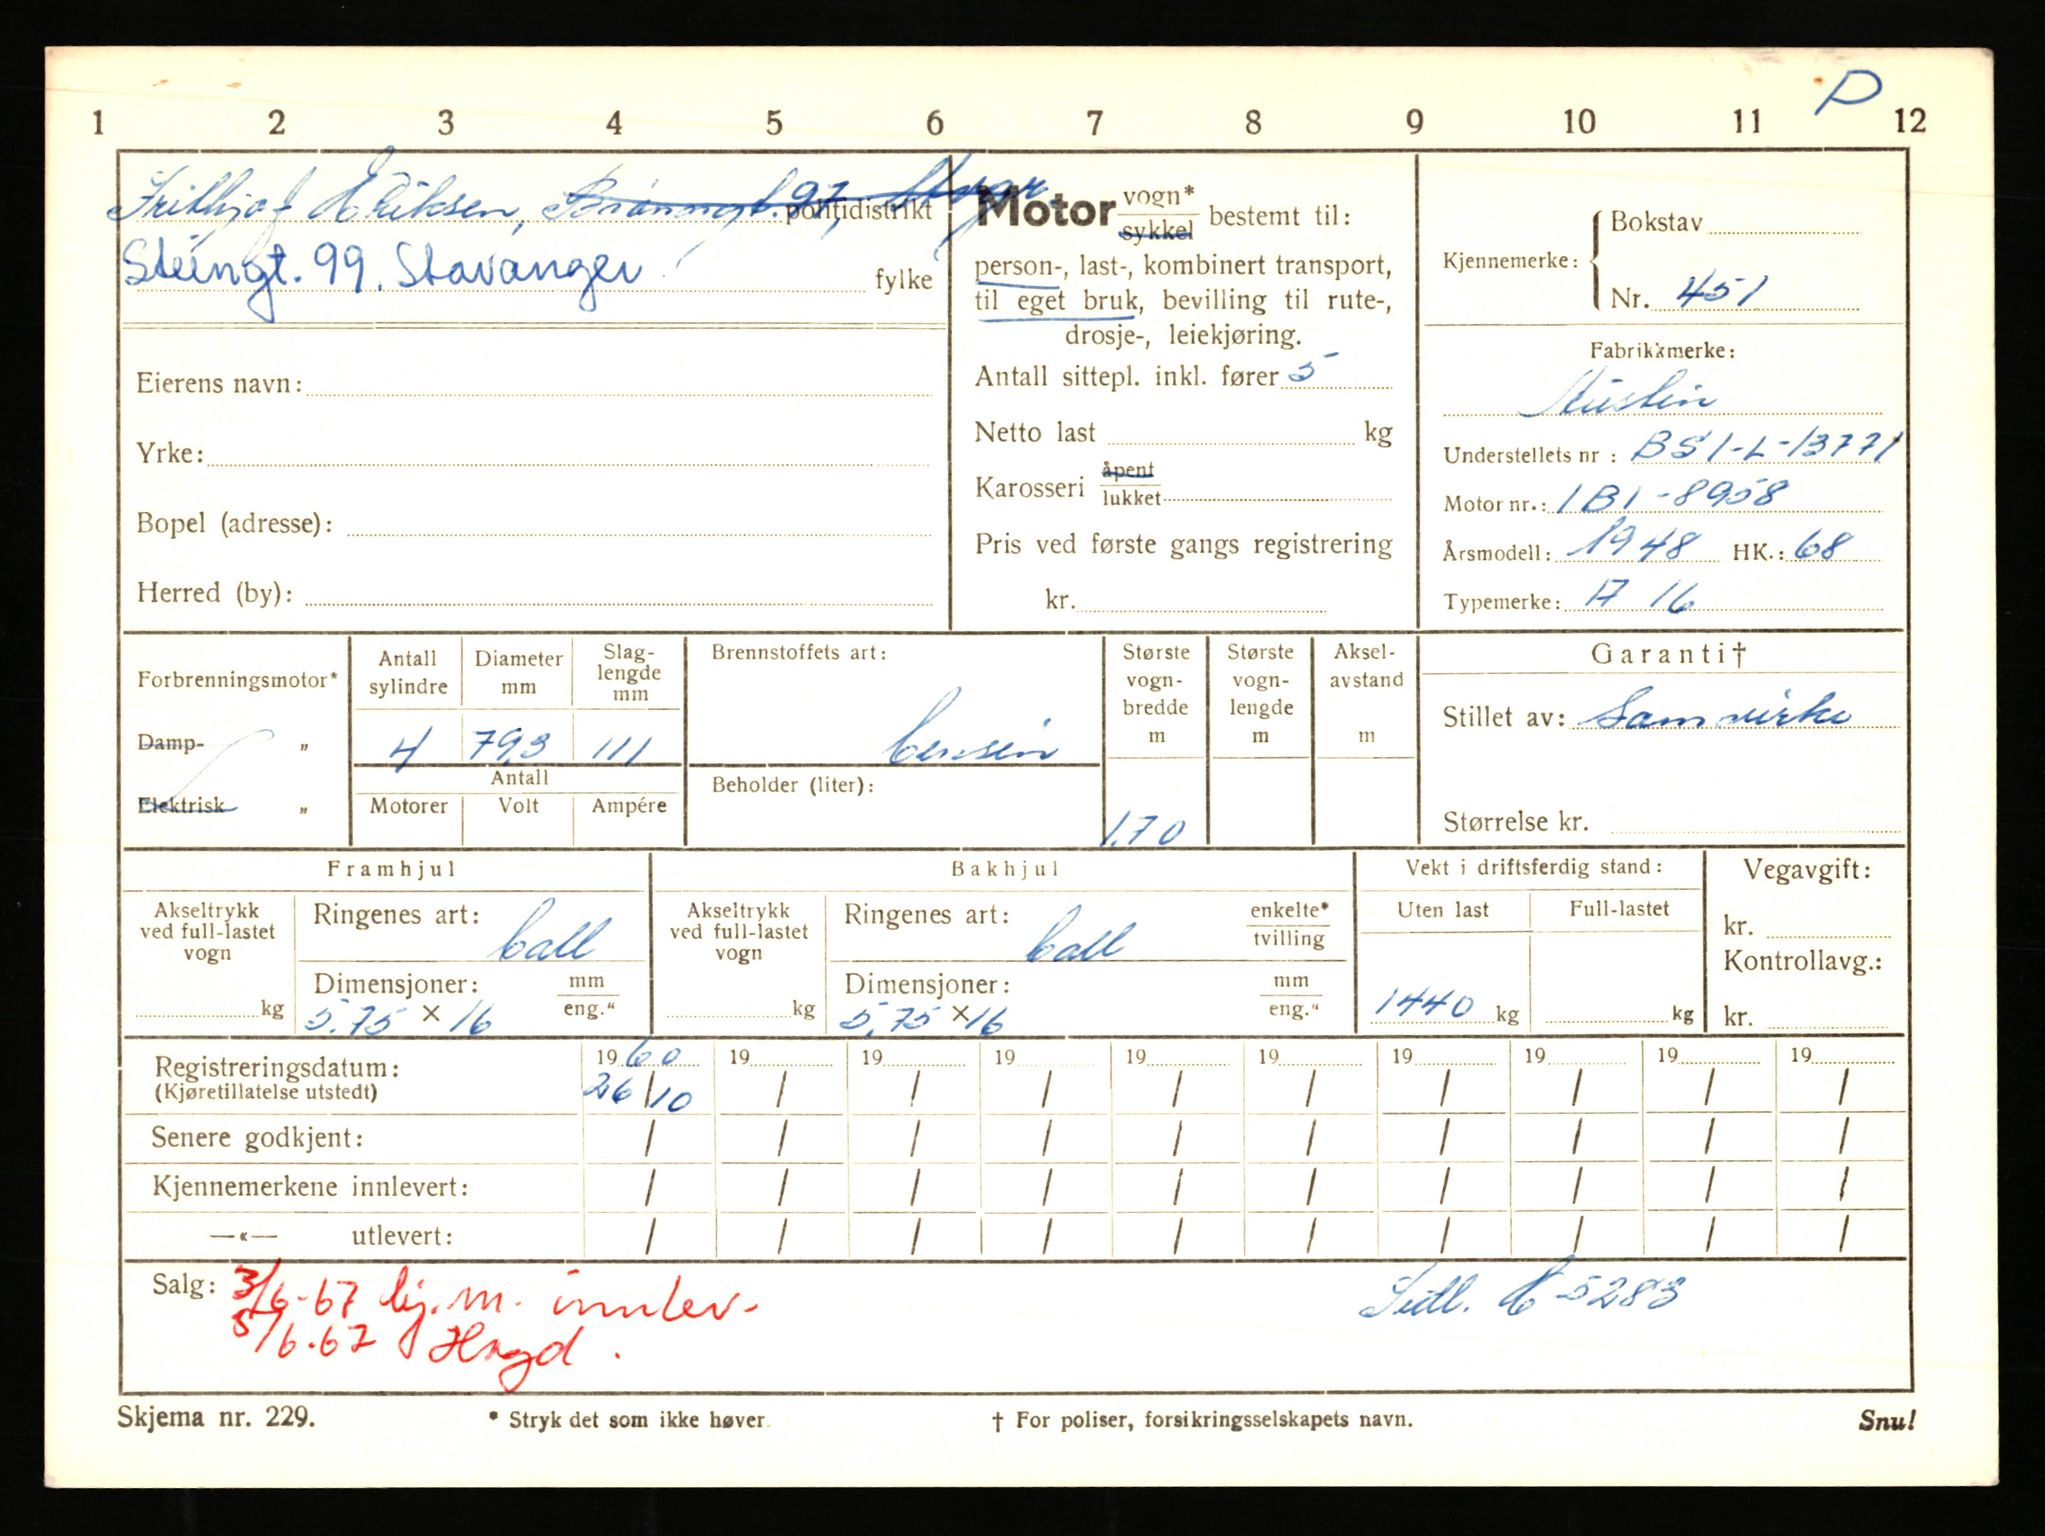 P
1 2 3 4 5 6 7 8 9 10 11 12
Frithjof Eriksen, politidistrikt
Steingt. 99. Stavanger fylke
Eierens navn:
Yrke:
Bopel (adresse):
Herred (by):
Motor vogn* sykkel bestemt til:
person-, last-, kombinert transport,
til eget bruk, bevilling til rute-,
drosje-, leiekjøring.
Antall sittepl. inkl. fører 5
Netto last kg
Karosseri åpent lukket
Pris ved første gangs registrering
kr.
Kjennemerke: Bokstav
Nr. 451
Fabrikkmerke:
Austin
Understellets nr : BS1-L-13771
Motor nr.: 1B1-8958
Årsmodell: 1948 HK.: 68
Typemerke: A 16
Forbrenningsmotor*
Damp- „
Elektrisk „
Antall sylindre Diameter mm Slag-lengde mm
4 79,3 111
Antall
Motorer Volt Ampére
Brennstoffets art:
bensin
Beholder (liter):
Største vogn-bredde m
1.70
Største vogn-lengde m
Aksel-avstand m
Garanti†
Stillet av: Samvirke
Størrelse kr.
Framhjul
Akseltrykk ved full-lastet vogn
kg
Ringenes art: ball
Dimensjoner: mm eng."
5.75 × 16
Bakhjul
Akseltrykk ved full-lastet vogn
kg
Ringenes art: enkelte* tvilling
ball
Dimensjoner: mm eng."
5,75 × 16
Vekt i driftsferdig stand:
Uten last Full-lastet
1440 kg kg
Vegavgift:
kr.
Kontrollavg.:
kr.
Registreringsdatum: 19 60 19 19 19 19 19 19 19 19 19
(Kjøretillatelse utstedt) 26/10 / / / / / / / / /
Senere godkjent: / / / / / / / / / /
Kjennemerkene innlevert: / / / / / / / / / /
—«— utlevert: / / / / / / / / / /
Salg: 3/6-67 kj.m. innlev-
5/6.67
5283
Skjema nr. 229. * Stryk det som ikke høver. † For poliser, forsikringsselskapets navn. Snu!